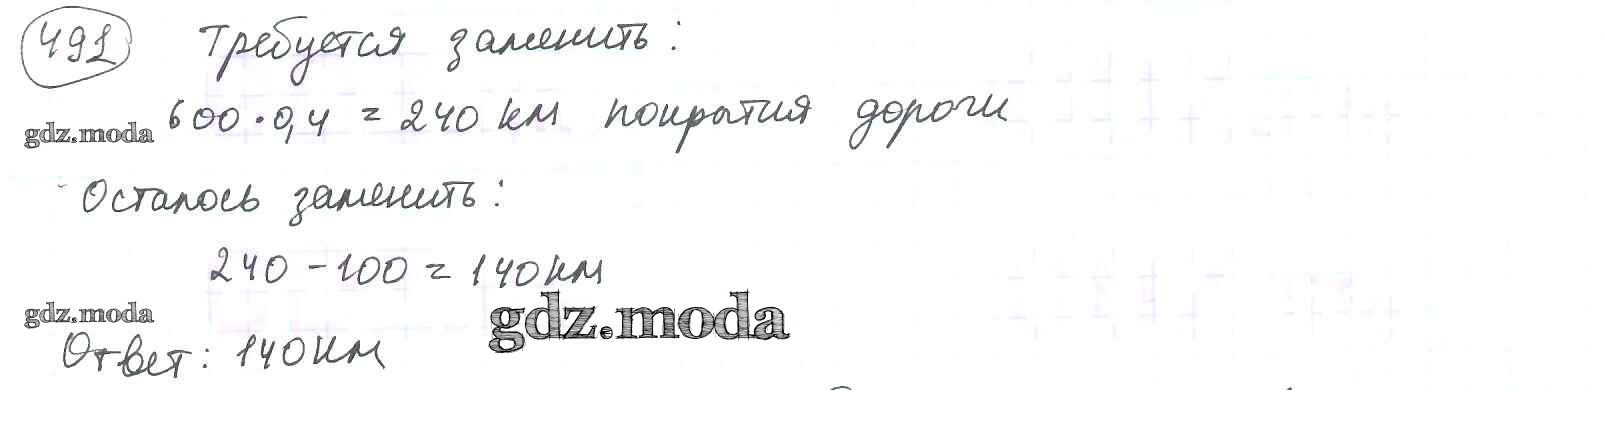 491 Требуется заменить:
gdz.moda 600·0,4 = 240 км покрытия дороги
Осталось заменить:
240 - 100 = 140 км
gdz.moda gdz.moda
Ответ: 140 км